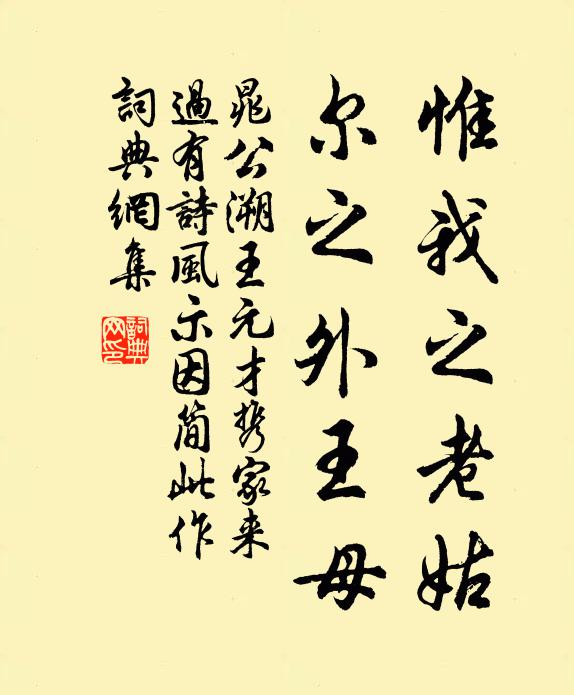 惟我之老姑
尔之外王母
晁公溯王元才携家来
過有詩風示因简此作
詞典網集
詞典网印